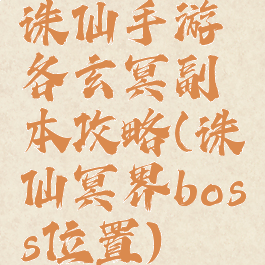 诛仙手游
各玄冥副
本攻略(诛
仙冥界bos
s位置)